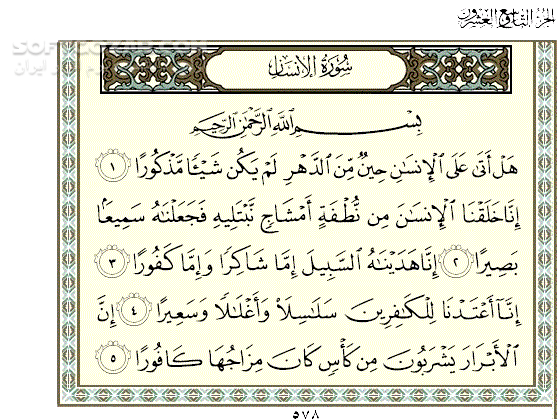 الجزء التاسع والعشرون
سُورَةُ الإِنسَانِ
بِسْمِ اللَّهِ الرَّحْمَٰنِ الرَّحِيمِ
هَلْ أَتَىٰ عَلَى الْإِنسَانِ حِينٌ مِّنَ الدَّهْرِ لَمْ يَكُن شَيْئًا مَّذْكُورًا ١
إِنَّا خَلَقْنَا الْإِنسَانَ مِن نُّطْفَةٍ أَمْشَاجٍ نَّبْتَلِيهِ فَجَعَلْنَاهُ سَمِيعًا
بَصِيرًا ٢ إِنَّا هَدَيْنَاهُ السَّبِيلَ إِمَّا شَاكِرًا وَإِمَّا كَفُورًا ٣
إِنَّا أَعْتَدْنَا لِلْكَافِرِينَ سَلَاسِلَا وَأَغْلَالًا وَسَعِيرًا ٤ إِنَّ
الْأَبْرَارَ يَشْرَبُونَ مِن كَأْسٍ كَانَ مِزَاجُهَا كَافُورًا ٥
٥٧٨